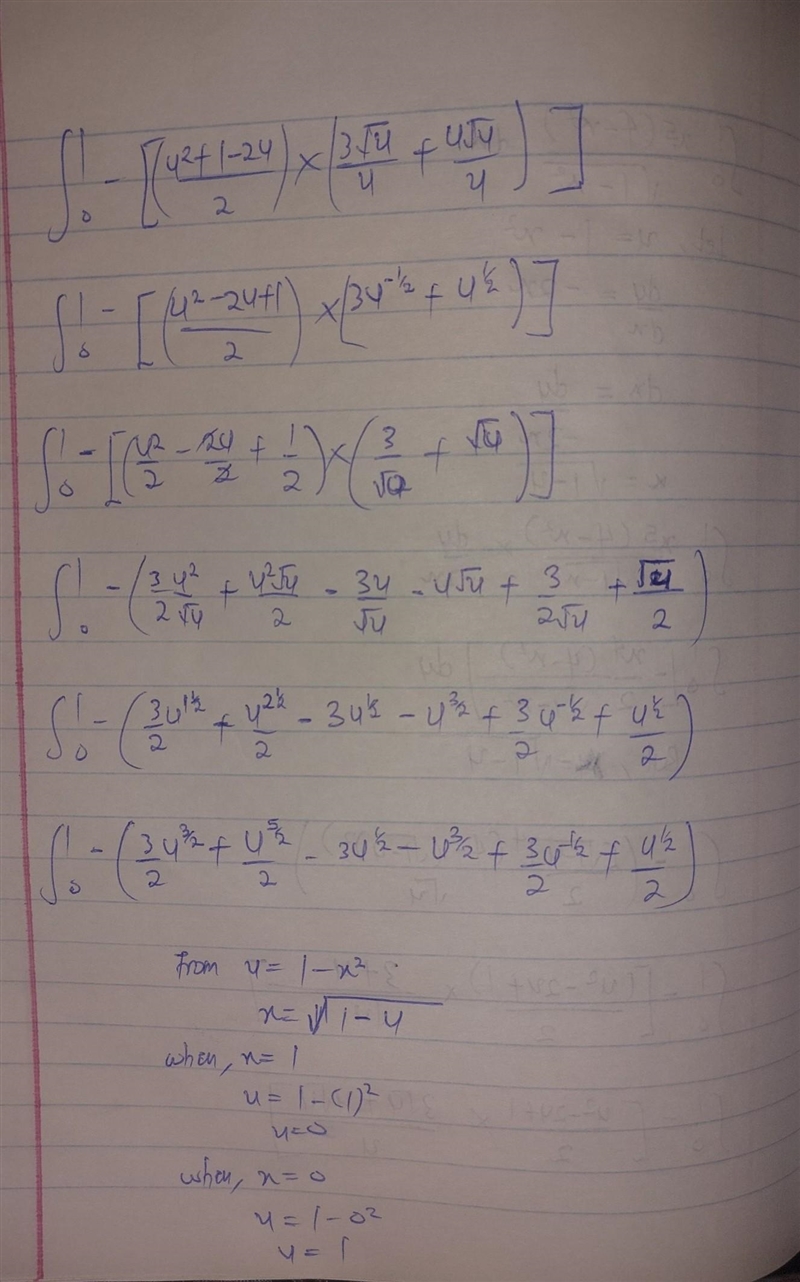 ∫₀¹ - [(u²+1-2u)/2 × (3√u/u + u√u/u)]
∫₀¹ - [(u²-2u+1)/2 × (3u^(-1/2) + u^(1/2))]
∫₀¹ - [(u²/2 - 2u/2 + 1/2) × (3/√u + √u)]
∫₀¹ - (3u²/2√u + u²√u/2 - 3u/√u - u√u + 3/2√u + √u/2)
∫₀¹ - (3u^(1 1/2)/2 + u^(2 1/2)/2 - 3u^(1/2) - u^(3/2) + 3u^(-1/2)/2 + u^(1/2)/2)
∫₀¹ - (3u^(3/2)/2 + u^(5/2)/2 - 3u^(1/2) - u^(3/2) + 3u^(-1/2)/2 + u^(1/2)/2)
From u = 1-x²
x = √(1-u)
when, x = 1
u = 1-(1)²
u=0
when, x = 0
u = 1-0²
u = 1